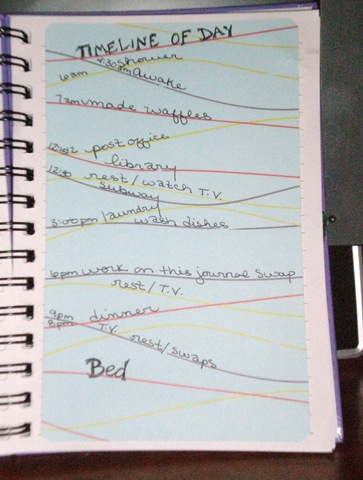 TIMELINE OF DAY
shower
6am awake
7am made waffles
post office
library
rest/watch T.V.
subway
laundry
3:00pm wash dishes
6pm work on this journal swap
rest/T.V.
9pm dinner
T.V.
rest/swaps
Bed